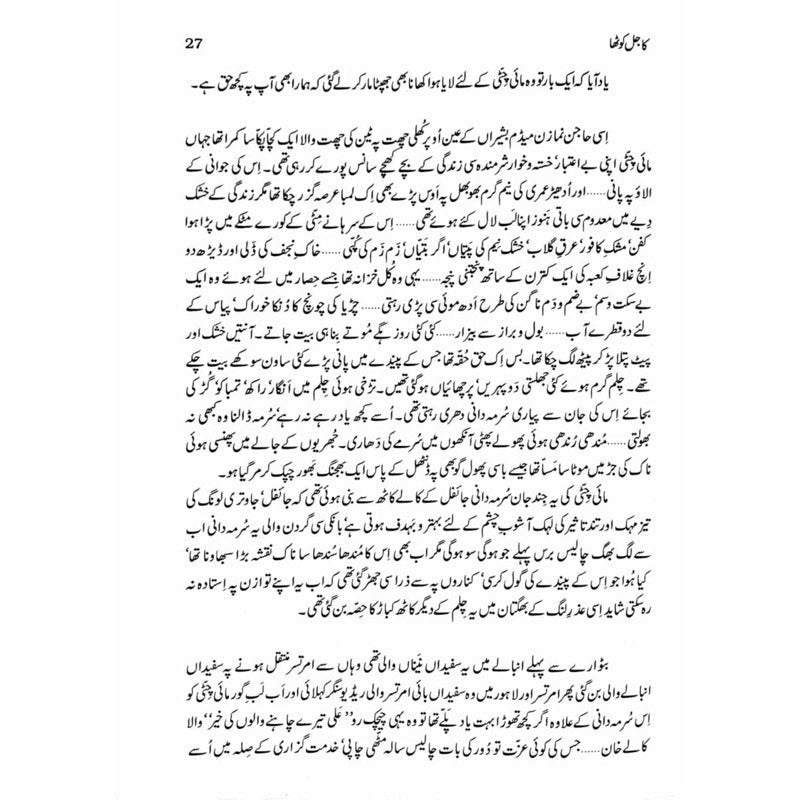 کاجل کوٹھا 27
یاد آیا کہ ایک بار تو وہ مائی چنّی کے لئے لایا ہوا کھانا بھی جھپٹا مار کر لے گئی کہ ہمارا بھی آپ پہ کچھ حق ہے۔
اِسی حاجن نمازن میڈم بشیراں کے عین اُوپر کُھلی چھت پہ ٹین کی چھت والا ایک کچّا پکّا سا کمرا تھا جہاں
مائی چنّی اپنی بے اعتبار' خستہ و خوار شرمندہ سی زندگی کے بچے کھچے سانس پورے کر رہی تھی۔ اِس کی جوانی کے
الاؤ پہ پانی......اور اُدھیڑ عمری کی نیم گرم بھوبھل پہ اَوس پڑے بھی اِک لمبا عرصہ گزر چکا تھا مگر زندگی کے خشک
دِیے میں معدوم سی باتی ہنوز اپنا لَب لال کئے ہوئے تھی...... اِس کے سرہانے مِٹّی کے کورے مٹکے میں پڑا ہوا
کفن' مشکِ کافور' عرقِ گلاب' خشک نیم کی پتیاں' اگر بتیّاں' زَم زَم کی کُپّی...... خاکِ نجف کی ڈَلی اور ڈیڑھ دو
اِنچ غلافِ کعبہ کی ایک کترن کے ساتھ پنجتنی پنجہ...... یہی وہ کُل خزانہ تھا جسے حِصار میں لئے ہوئے وہ ایک
بے سکت وسم' بے ضم و دَم ناگن کی طرح اَدھ موئی سی پڑی رہتی...... چڑیا کی چونچ کا دُنکا خوراک' پیاس کے
لئے دو قطرے آب...... بول و براز سے بیزار......کئی کئی روز ہگے مُوتے بِنا ہی بیت جاتے۔ آنتیں خشک اور
پیٹ پتلا پڑ کر پیٹھ لگ چکا تھا۔ بس اِک حق حُقّہ تھا جس کے پیندے میں پانی پڑے کئی ساون سوکھے بیت چکے
تھے۔ چِلم گرم ہوئے کئی جھلستی دَوپہریں' پرچھائیاں ہو گئی تھیں۔ تڑخی ہوئی چِلم میں اَنگار' راکھ' تمباکو' گُڑ کی
بجائے اِس کی جان سے پیاری سُرمہ دانی دھری رہتی تھی۔ اُسے کچھ یاد رہے نہ رہے' سُرمہ ڈالنا وہ کبھی نہ
بھولتی......مُندھی رُندھی ہوئی پھولے پھٹی آنکھوں میں سُرمے کی دَھاری۔ جُھریوں کے جالے میں پھنسی ہوئی
ناک کی جڑ میں موٹا سا مَسّا تھا جیسے باسی پھول گوبھی پہ ڈنٹھل کے پاس ایک بھجنگ بَھور چپک کر مر گیا ہو۔
مائی چنّی کی یہ جِند جان سُرمہ دانی جائفل کے کالے کاٹھ سے بنی ہوئی تھی کہ جائفل' جاوتری لونگ کی
تیز مہک اور تند تاثیر کی لہک آشوبِ چشم کے لئے بہتر و بہدف ہوتی ہے' بانکی سی گردن والی یہ سُرمہ دانی اب
سے لگ بھگ چالیس برس پہلے جو ہو گی سو ہو گی مگر اب بھی اِس کا مُندھا سُندھا سا ناک نقشہ بڑا سبھاونا تھا'
کیا ہُوا جو اِس کے پیندے کی گول کرسی' کناروں پہ سے ذرا سی جھڑ گئی تھی کہ اب یہ اپنے توازن پہ اِستادہ نہ
رہ سکتی شاید اِسی عذرِ لنگ کے بھگتان میں یہ چِلم کے دیگر کاٹھ کباڑ کا حِصّہ بن گئی تھی۔
بٹوارے سے پہلے انبالے میں یہ سفیداں نیناں والی تھی وہاں سے امرتسر منتقل ہونے پہ سفیداں
انبالے والی بن گئی پھر امرتسر اور لاہور میں وہ سفیداں بائی امرتسر والی ریڈیو سنگر کہلائی اور اَب لَبِ گور مائی چنّی کو
اِس سُرمہ دانی کے علاوہ اگر کچھ تھوڑا بہت یاد پلّے تھا تو وہ یہی چیچک رو' ''علی تیرے چاہنے والوں کی خیر'' والا
کالے خان...... جس کی کوئی عزّت تو دُور کی بات چالیس سالہ مٹھی چاپی' خدمت گزاری کے صِلہ میں اُسے